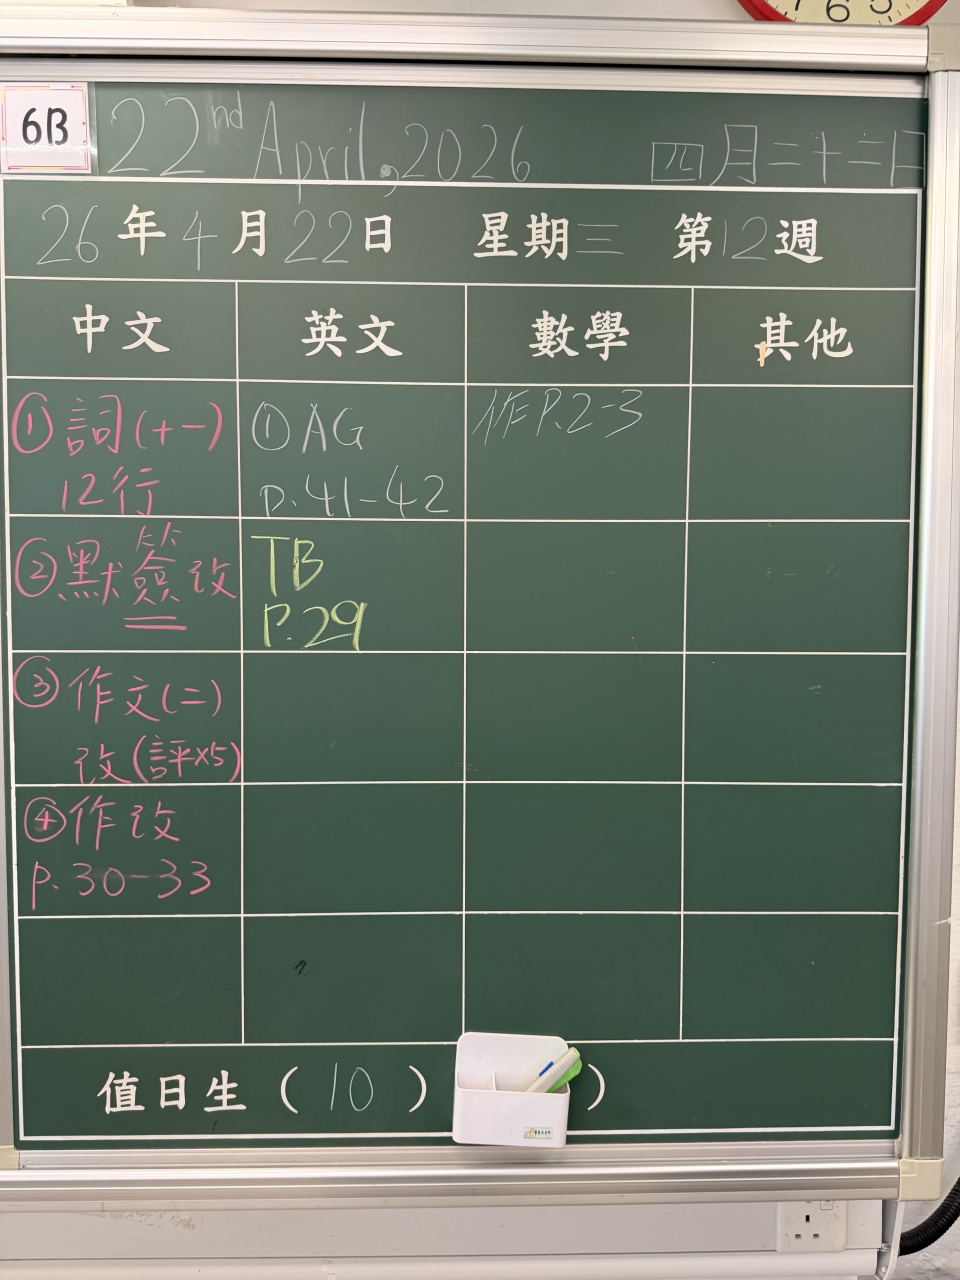 6 5
6B
22nd April, 2026 四月二十二日
26年4月22日 星期三 第12週
中文 英文 數學 其他
①詞(十一)
12行
①AG
p.41-42
作P.2-3
②默簽改
TB
P.29
③作文(二)
改(評x5)
④作改
p.30-33
值日生(10) )